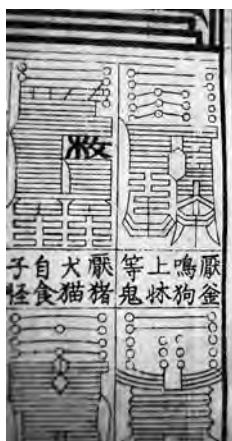 厭釜鳴狗上牀等鬼
厭猪犬猫自食子怪